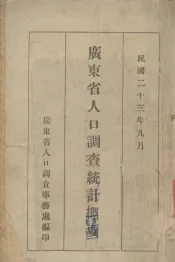 民國二十三年九月
廣東省人口調查統計概要
廣東省人口調查事務處編印